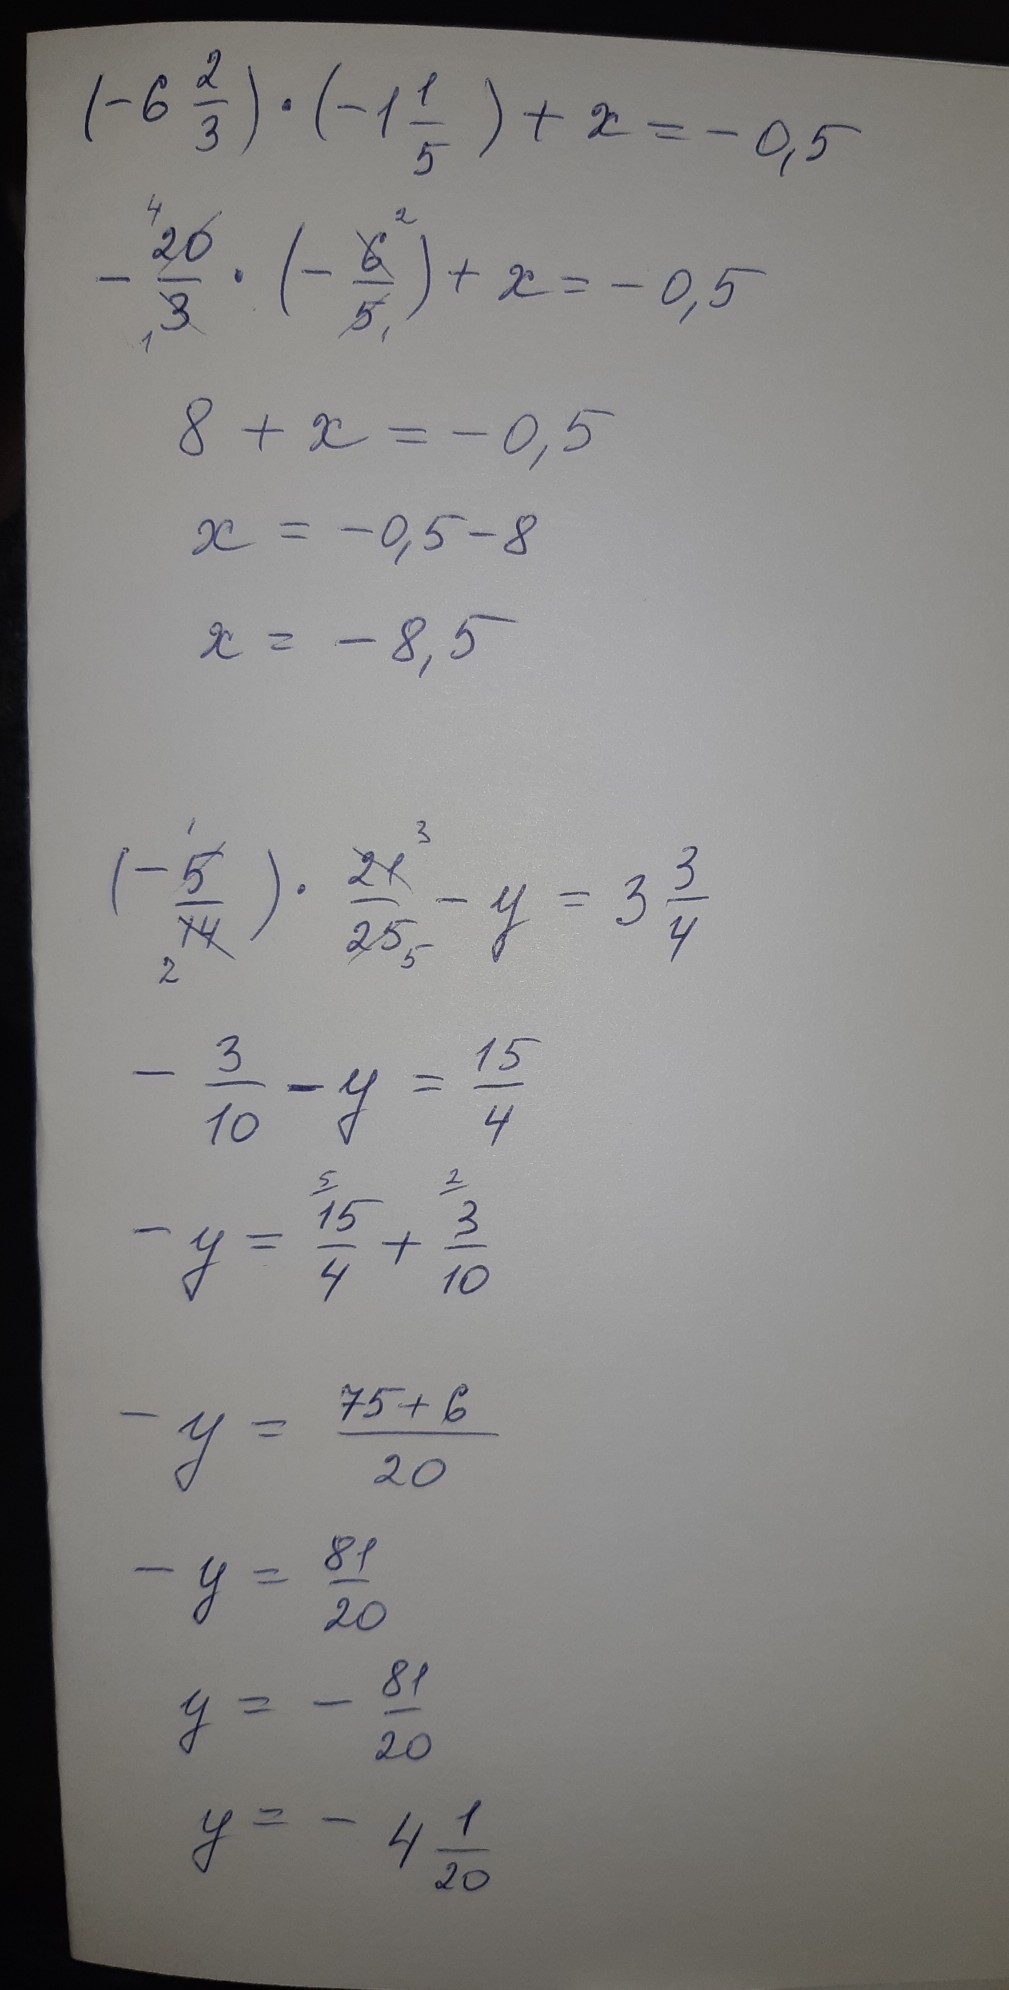 (-6 2/3) · (-1 1/5) + x = -0,5
4 2
- 20/3 · (- 6/5) + x = -0,5
1 1
8 + x = -0,5
x = -0,5-8
x = -8,5
1 3
(- 5/14) · 21/25 - y = 3 3/4
2 5
- 3/10 - y = 15/4
5 2
- y = 15/4 + 3/10
- y = 75+6/20
- y = 81/20
y = - 81/20
y = - 4 1/20